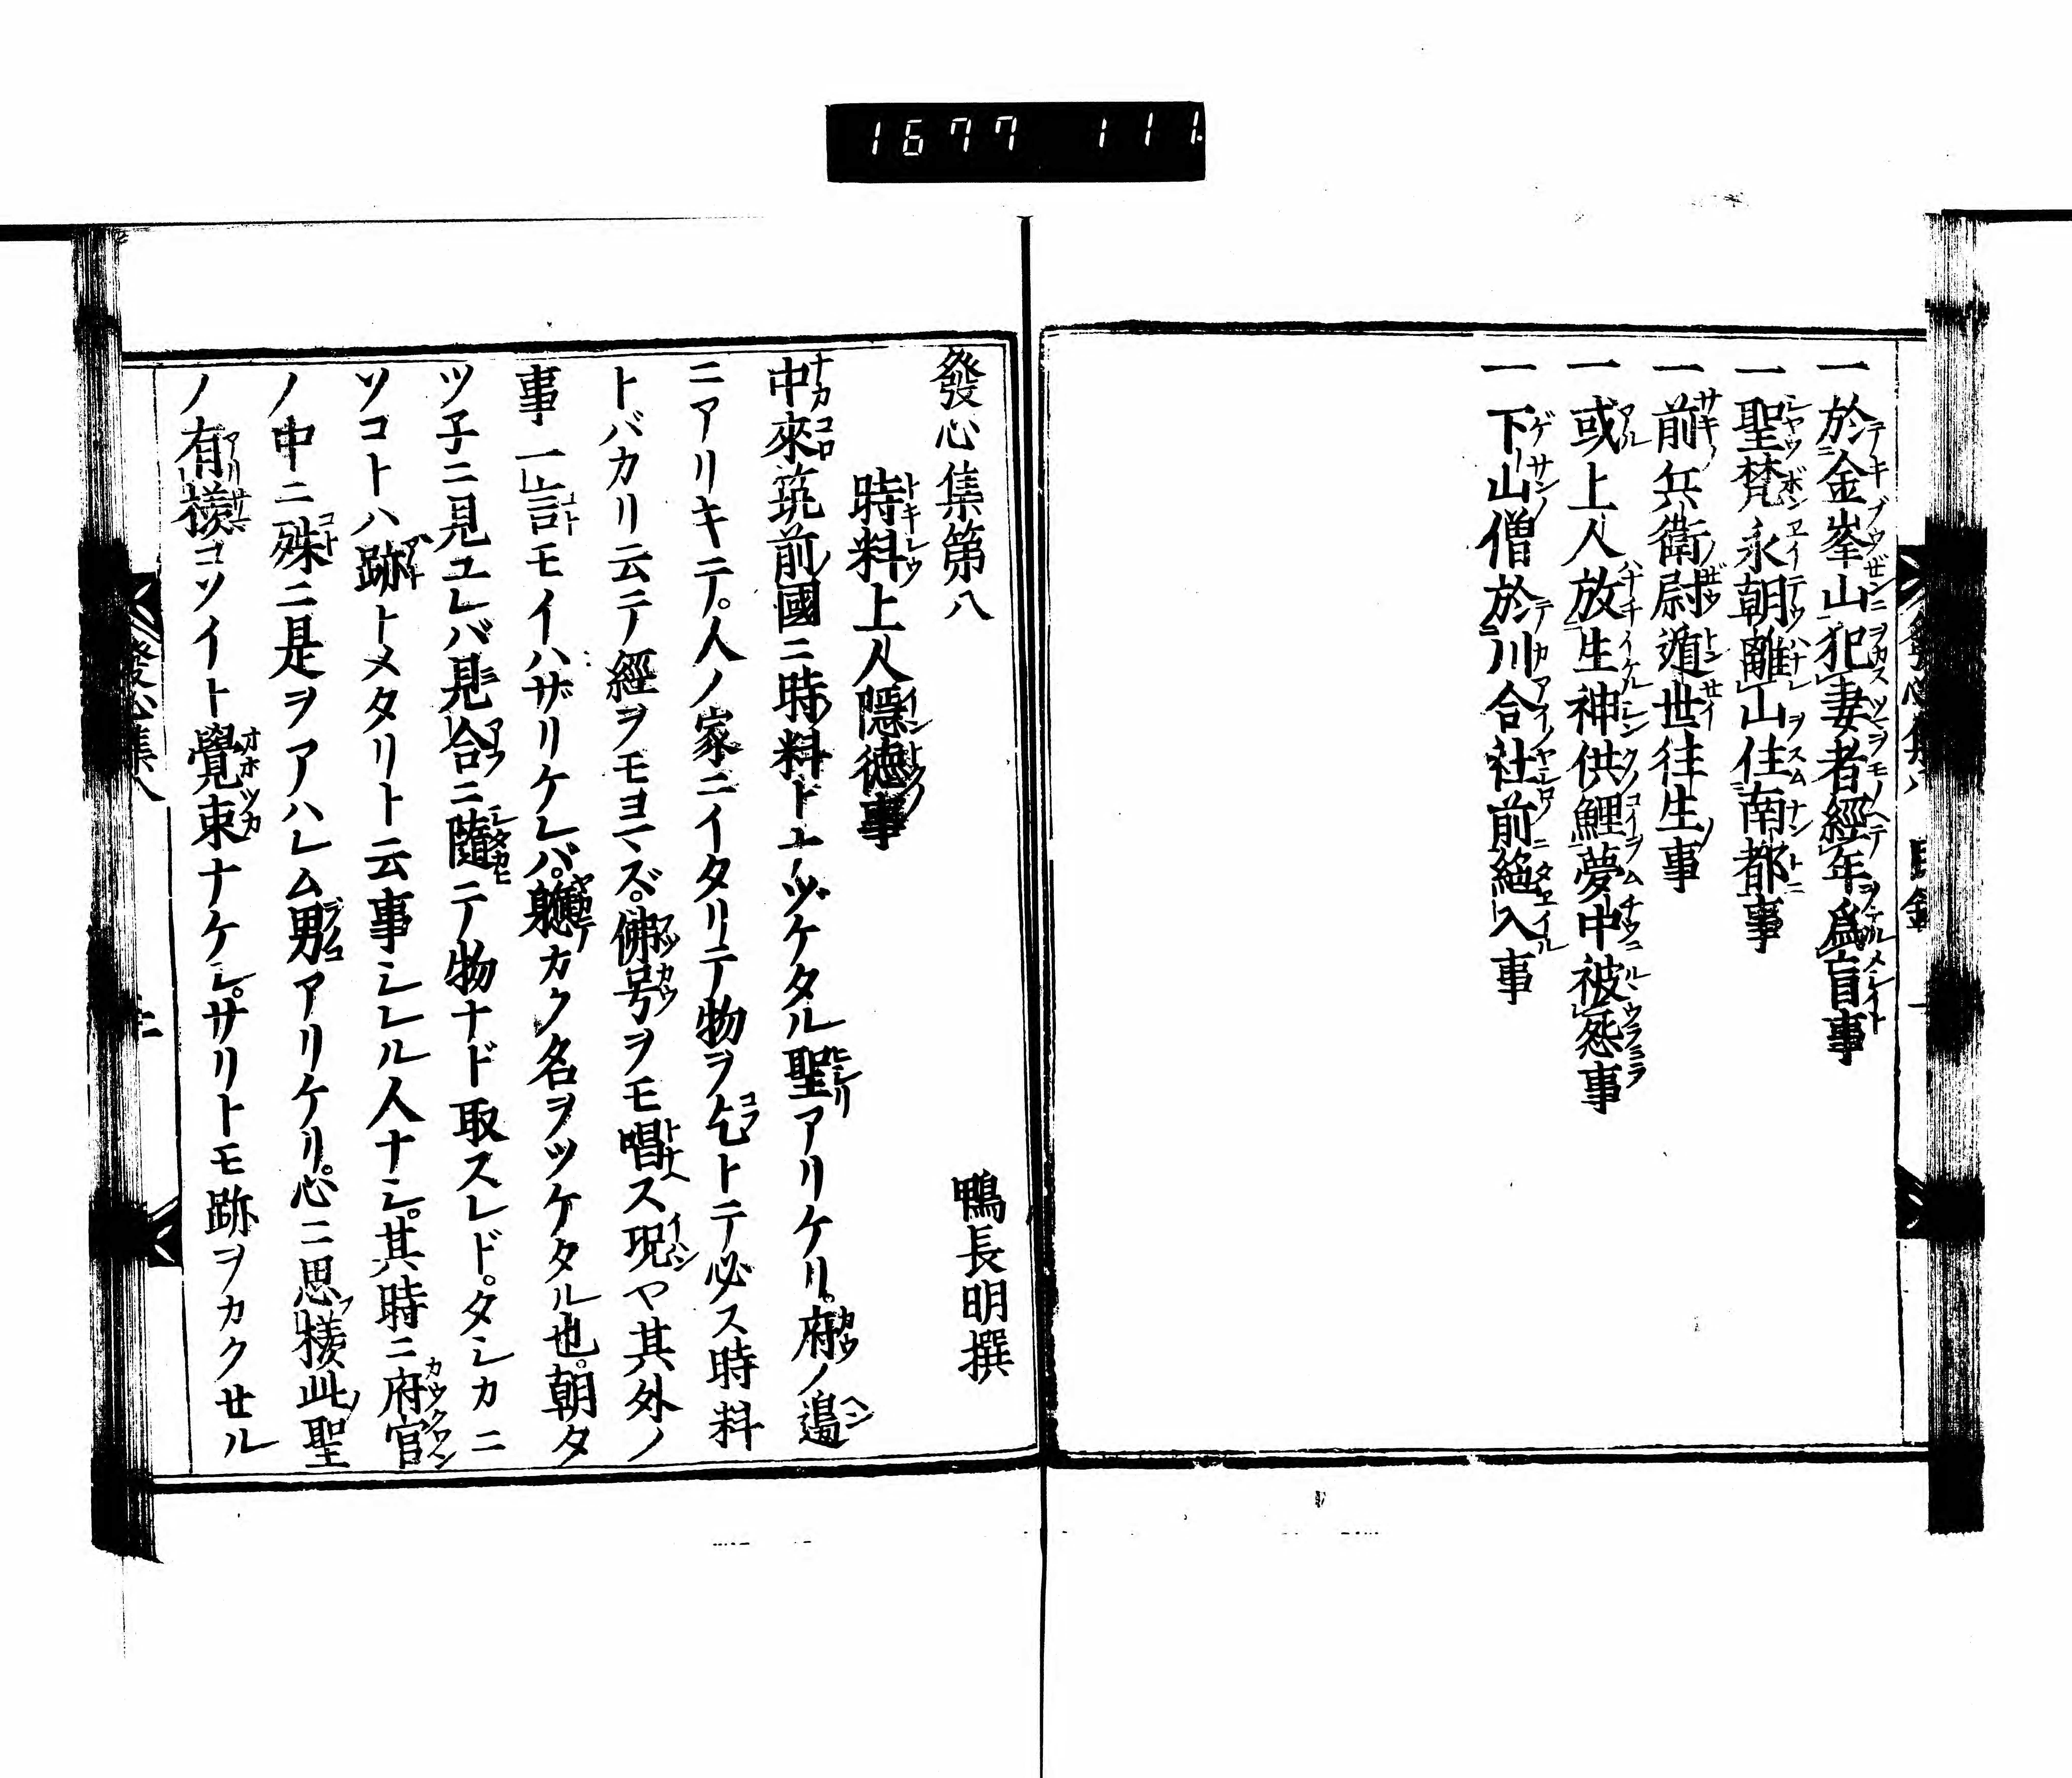 1677 111
一於金峯山犯妻者經年爲盲事
一聖梵永朝離山住南都事
一前兵衛尉遁世徃生事
一或上人放生神供鯉夢中被怨事
一下山僧於川合社前絶入事
發心集第八
鴨長明撰
時料上人隱徳事
中來筑前國ニ時料トナヅケタル聖アリケリ。府ノ邉
ニアリキテ。人ノ家ニイタリテ物ヲ乞トテ必ス時料
トバカリ云テ經ヲモヨマズ。佛号ヲモ唱ス况ヤ其外ノ
事一言モイハザリケレバ。軈カク名ヲツケタル也。朝タ
ツ子ニ見ユレバ見合ニ隨テ物ナド取スレド。タシカニ
ソコトハ跡トメタリト云事シレル人ナシ。其時ニ府官
ノ中ニ殊ニ是ヲアハレム男アリケリ。心ニ思樣此聖
ノ有樣コソイト覺束ナケレ。サリトモ跡ヲカクセル
發心集八